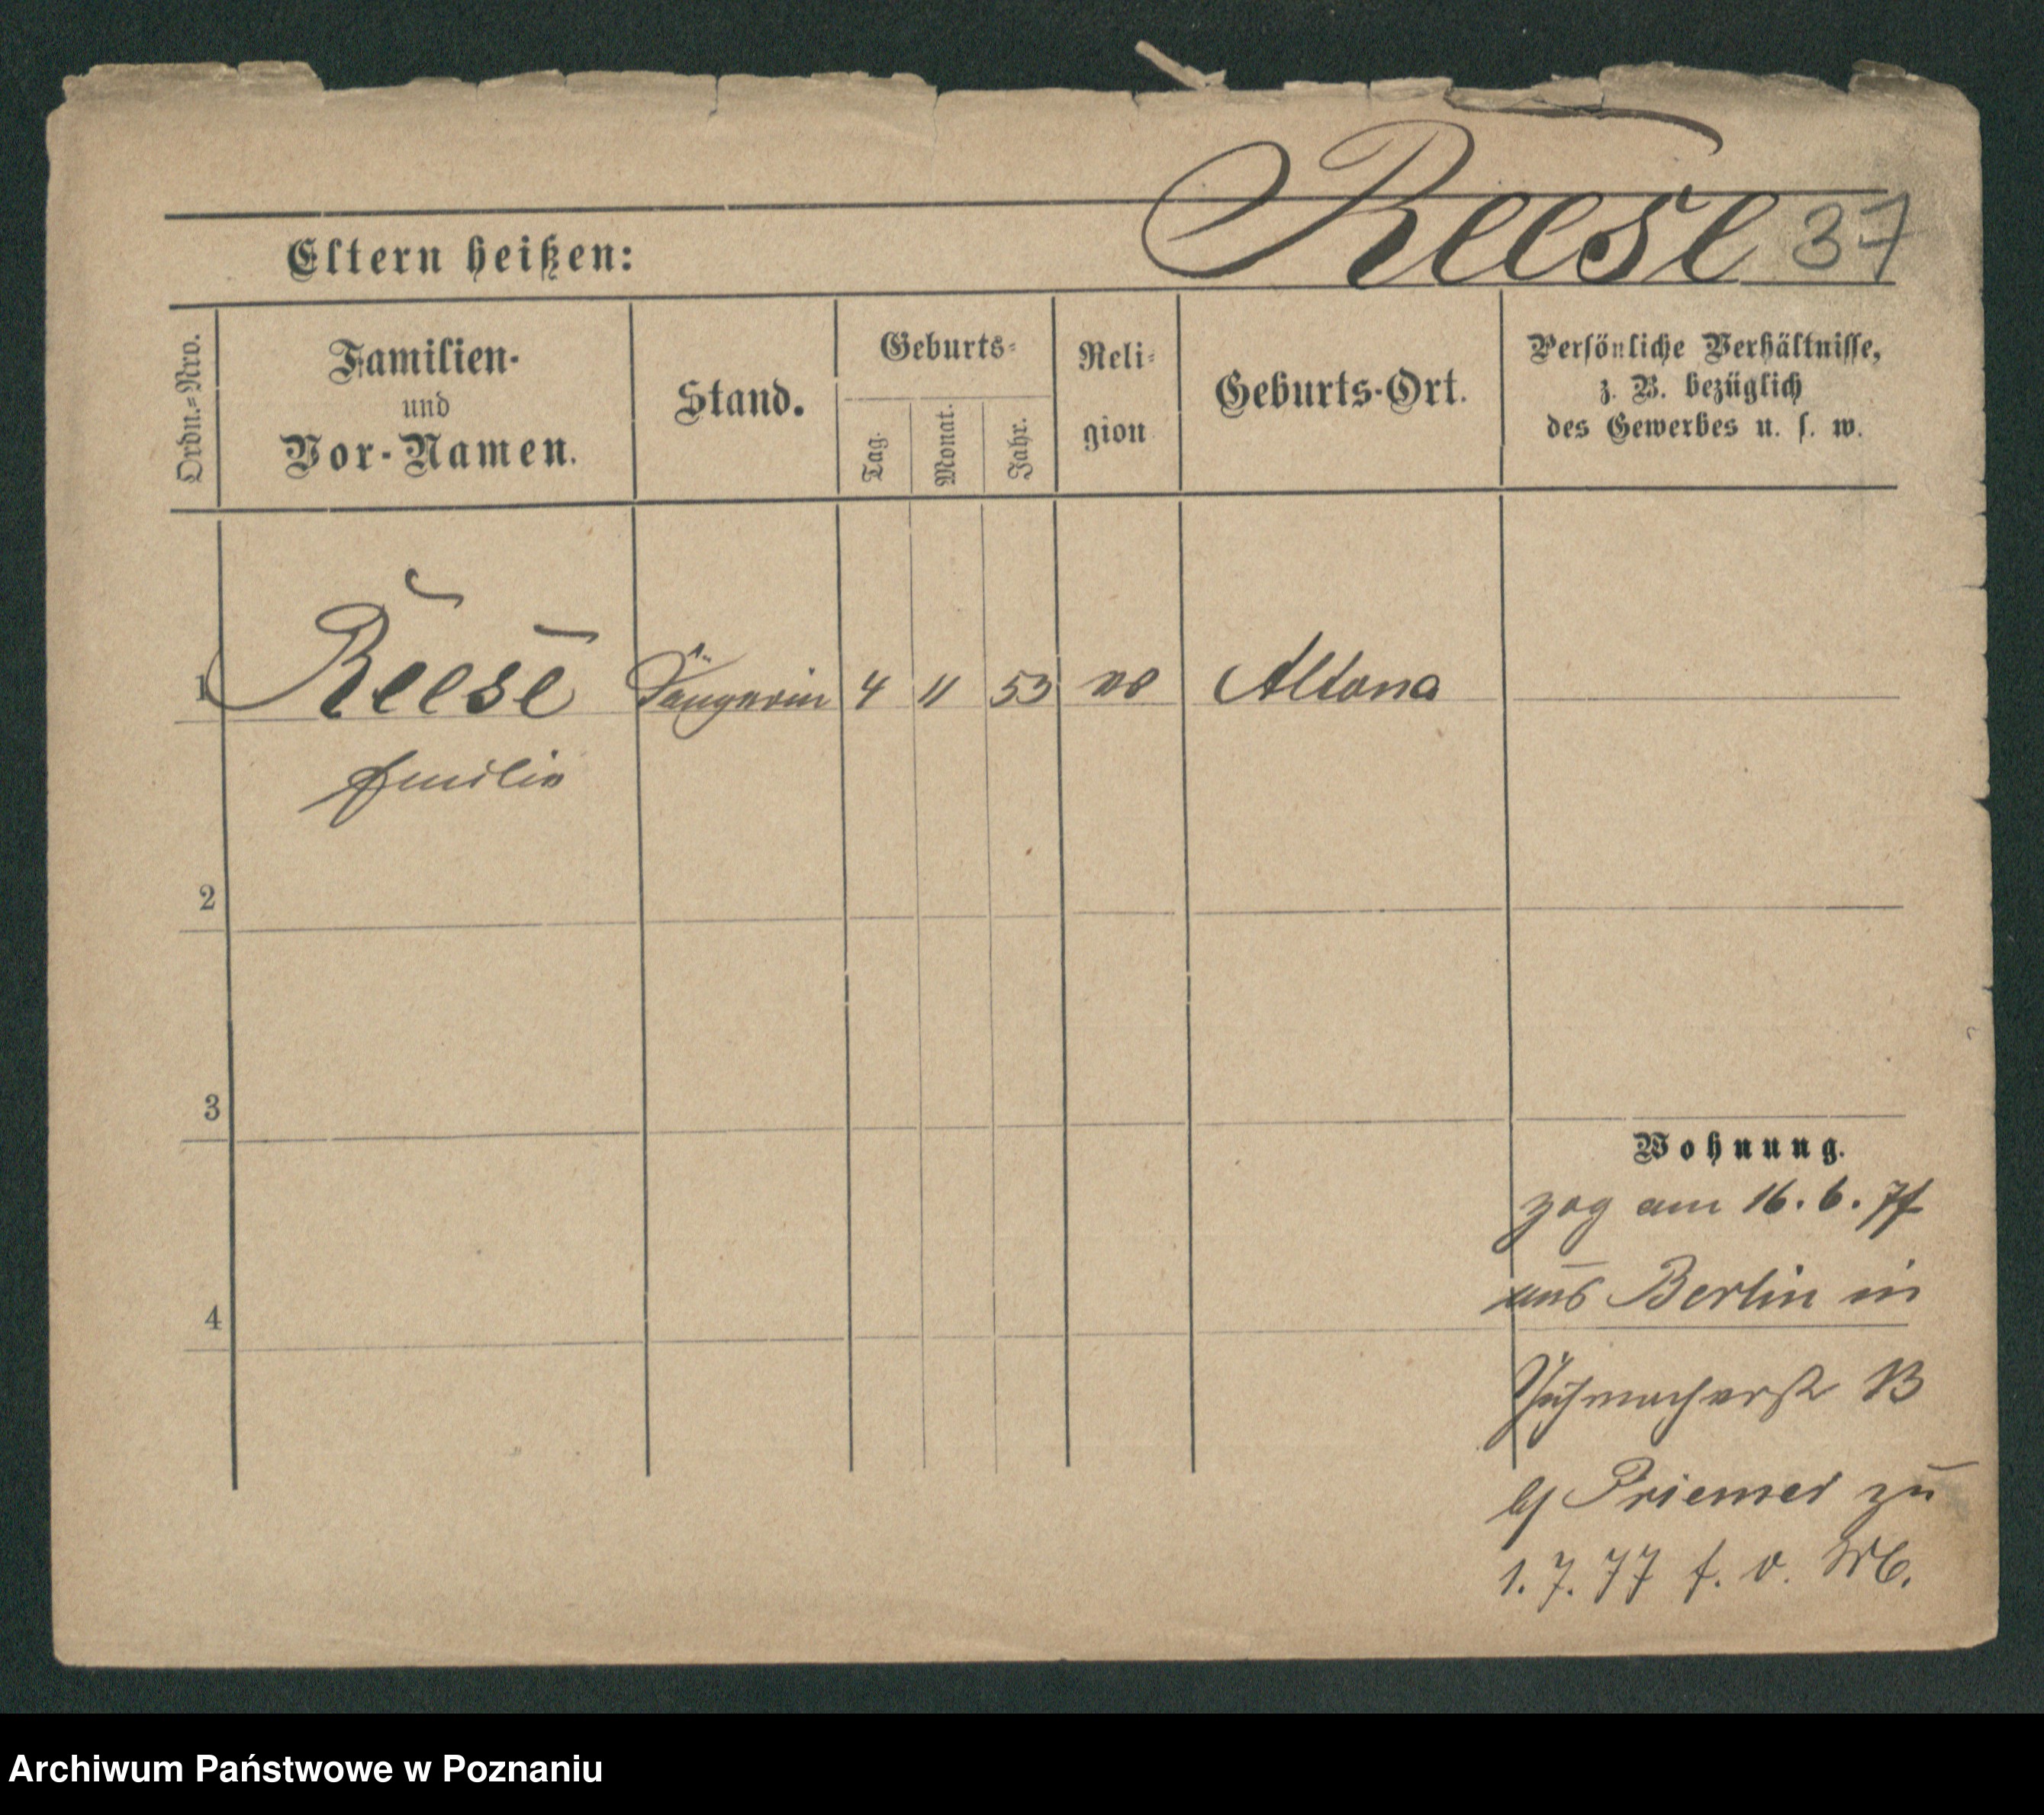 Reese 37
Eltern heißen:
Ordn.=Nro.
Familien-
und
Vor-Namen.
Stand.
Geburts=
Tag.
Monat.
Jahr.
Reli=
gion
Geburts-Ort.
Persönliche Verhältnisse,
z. B. bezüglich
des Gewerbes u. s. w.
1 Reese Sängerin 4 11 53 Altona
Emilie
2
3
Wohnung.
zog am 16. 6. 77
aus Berlin in
4
B
Priemer zu
1. 7. 77 f. v.
Archiwum Państwowe w Poznaniu